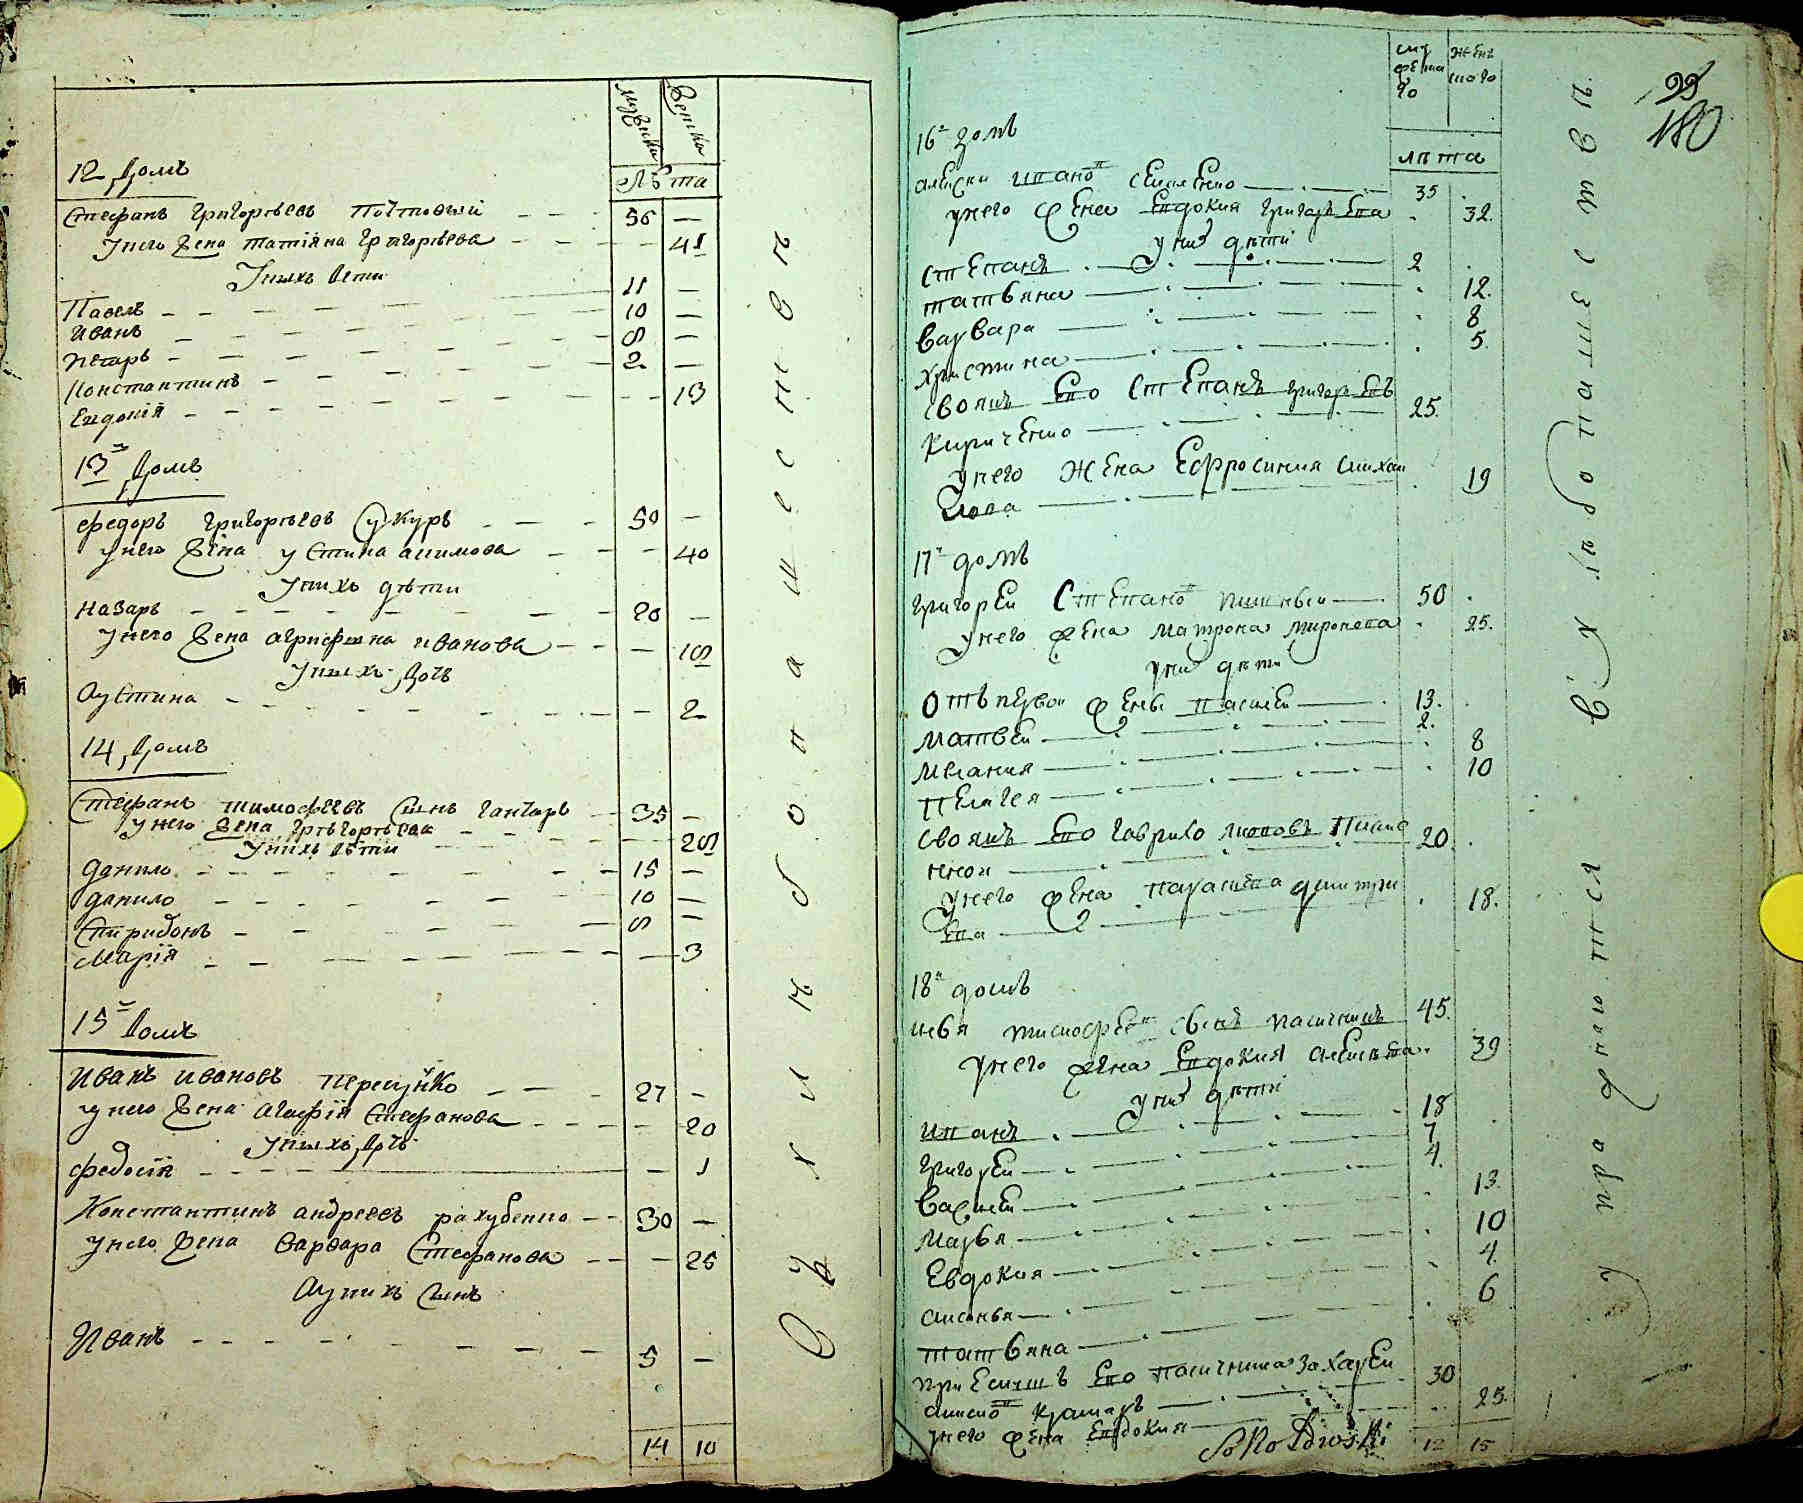 мужска
женска
лѣта
12 домъ
Стефанъ григорьевъ 56 —
Унего жена татіяна григорьева — 41
Унихъ дети
Павелъ 11 —
Иванъ 10 —
Петаръ 8 —
Константинъ 2 —
Евдокія — 13
13 домъ
Федоръ григорьевъ Цукуръ 50 —
унего жена устина акимова — 40
Унихъ дѣти
Назаръ 20 —
Унего жена агрифина иванова — 18
Унихъ дочъ
Аустина — 2
14 домъ
Стефанъ тимофеевъ сынъ гончаръ 35 —
унего жена григорьева — 28
Унихъ дѣти
Данило 15 —
Данило 10 —
Спиридонъ 8 —
Марія — 3
15 домъ
Иванъ ивановъ пересунко 27 —
Унего жена агафія Стефанова — 20
Унихъ дочъ
федосія — 1
Константинъ андреевъ рахубенко 30 —
Унего жена варвара Стефанова — 25
Аунихъ сынъ
Иванъ 5 —
14 10
хлѣбопашествѣ
99
180
мужеска го
женскаго
лѣта
16й домъ
алексей иванов 35
унего жена евдокия григорьева 32.
уних дѣти
степанъ 2
татьяна 12.
варвара 8
христина 5.
своякъ его степанъ григорьевъ
кириченко 25.
унего жена Ефросиния михаи
лова 19
17й домъ
григорей степанов 50
унего жена матрона миронова 25.
уних дѣти
отъ первои жены василеи 13.
матвеи 2.
мелания 8
пелагея 10
своякъ его гаврило 20
унего жена параскева дмитри
ева 18.
18й домъ
илья тимофеев сынъ пасичникъ 45.
унего жена евдокия алексѣева 39
уних дѣти
иванъ 18
григореи 7
василеи 4.
марья 13
евдокия 10
аксенья 4.
татьяна 6
приемышъ его пасичника захареи 30
унего жена евдокия 25.
12 15
упражняются в хлѣбопашествѣ.